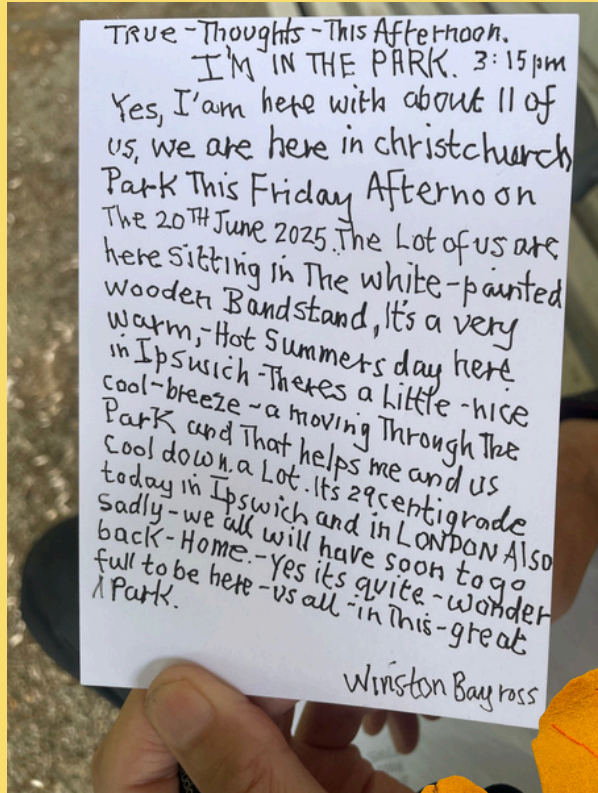 TRUE-Thoughts-This Afternoon.
I'M IN THE PARK. 3:15pm
Yes, I'am here with about 11 of
us, we are here in christchurch
Park This Friday Afternoon
The 20TH June 2025. The Lot of us are
here sitting in The white-painted
wooden Bandstand, It's a very
warm,-Hot Summers day here
in Ipswich-Theres a Little-nice
cool-breeze-a moving Through The
Park and That helps me and us
Cool down. a Lot. Its 29centigrade
today in Ipswich and in LONDON Also
Sadly-we all will have soon to go
back-Home.-Yes its quite-wonder
full to be here-us all-in This-great
Park.
Winston Bayross